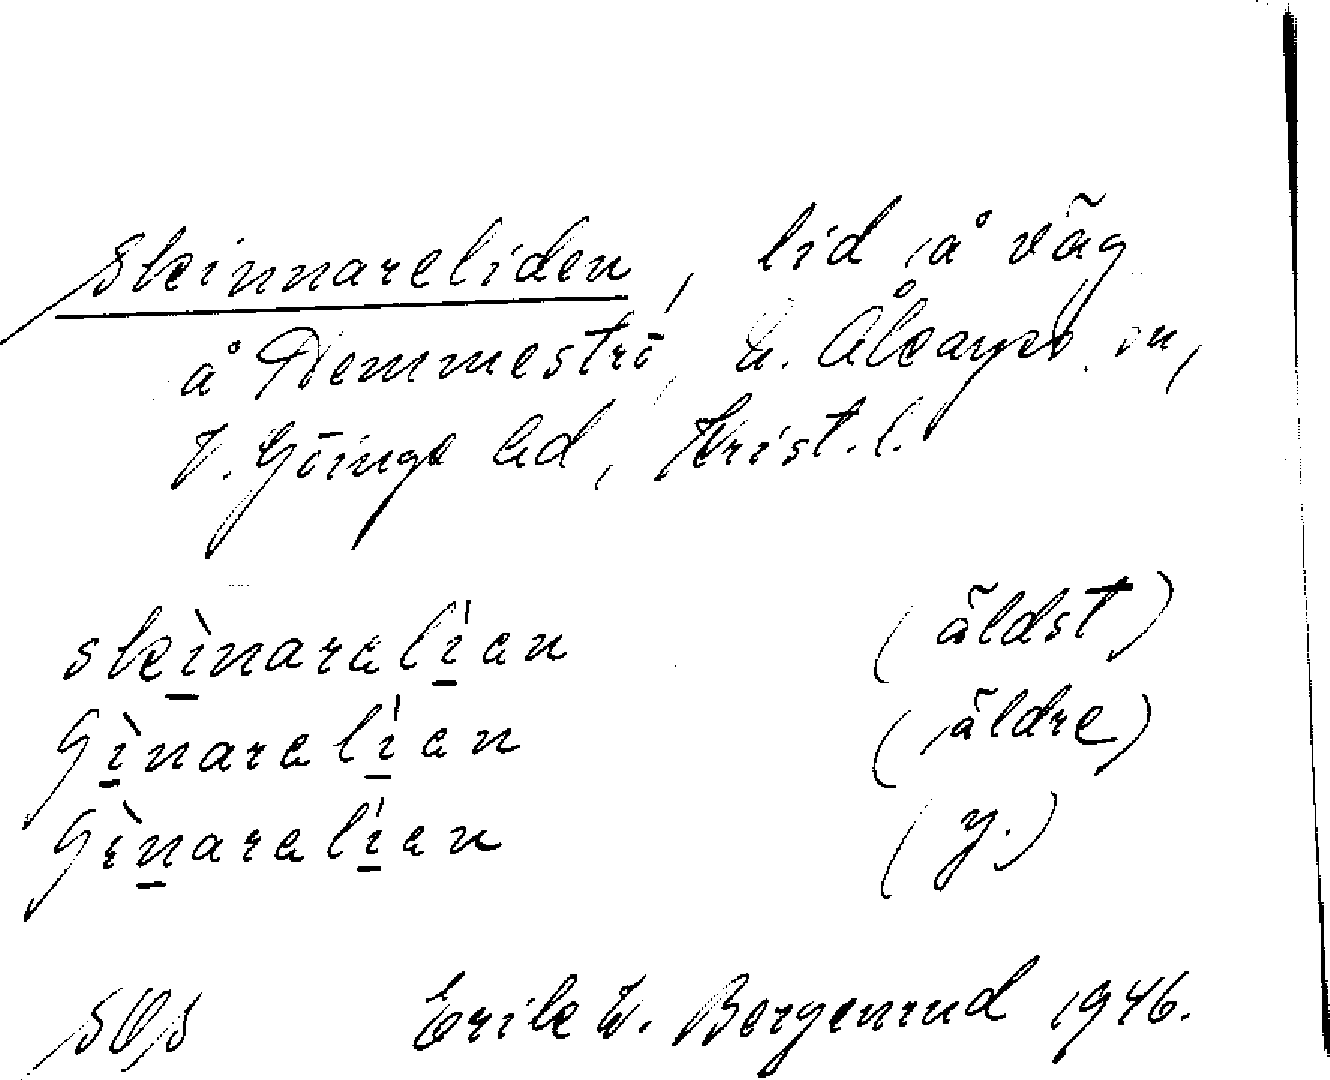 Skinnareliden, lid å väg
å Demmeströ, N. Åkarps sn,
V. Göinge hd, Krist. l.
skìnaralían (äldst)
ʃìnaralían (äldre)
ʃìnaralían (y.)
SOS Erik W. Bergenrud 1946.